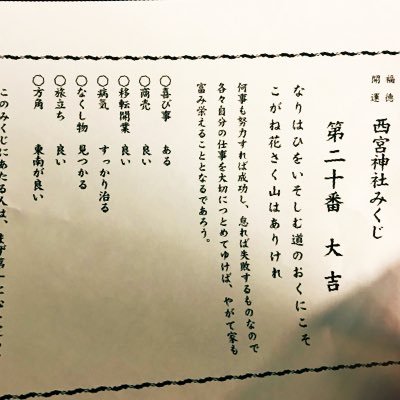 福徳
開運
西宮神社みくじ
第二十番 大吉
なりはひをいそしむ道のおくにこそ
こがね花さく山はありけれ
何事も努力すれば成功し、怠れば失敗するものなので
各々自分の仕事を大切につとめてゆけば、やがて家も
富み栄えることとなるであろう。
〇喜び事 ある
〇商売 良い
〇移転開業 良い
〇病気 すっかり治る
〇なくし物 見つかる
〇旅立ち 良い
〇方角 東南が良い
このみくじにあたる人は、まず第一に